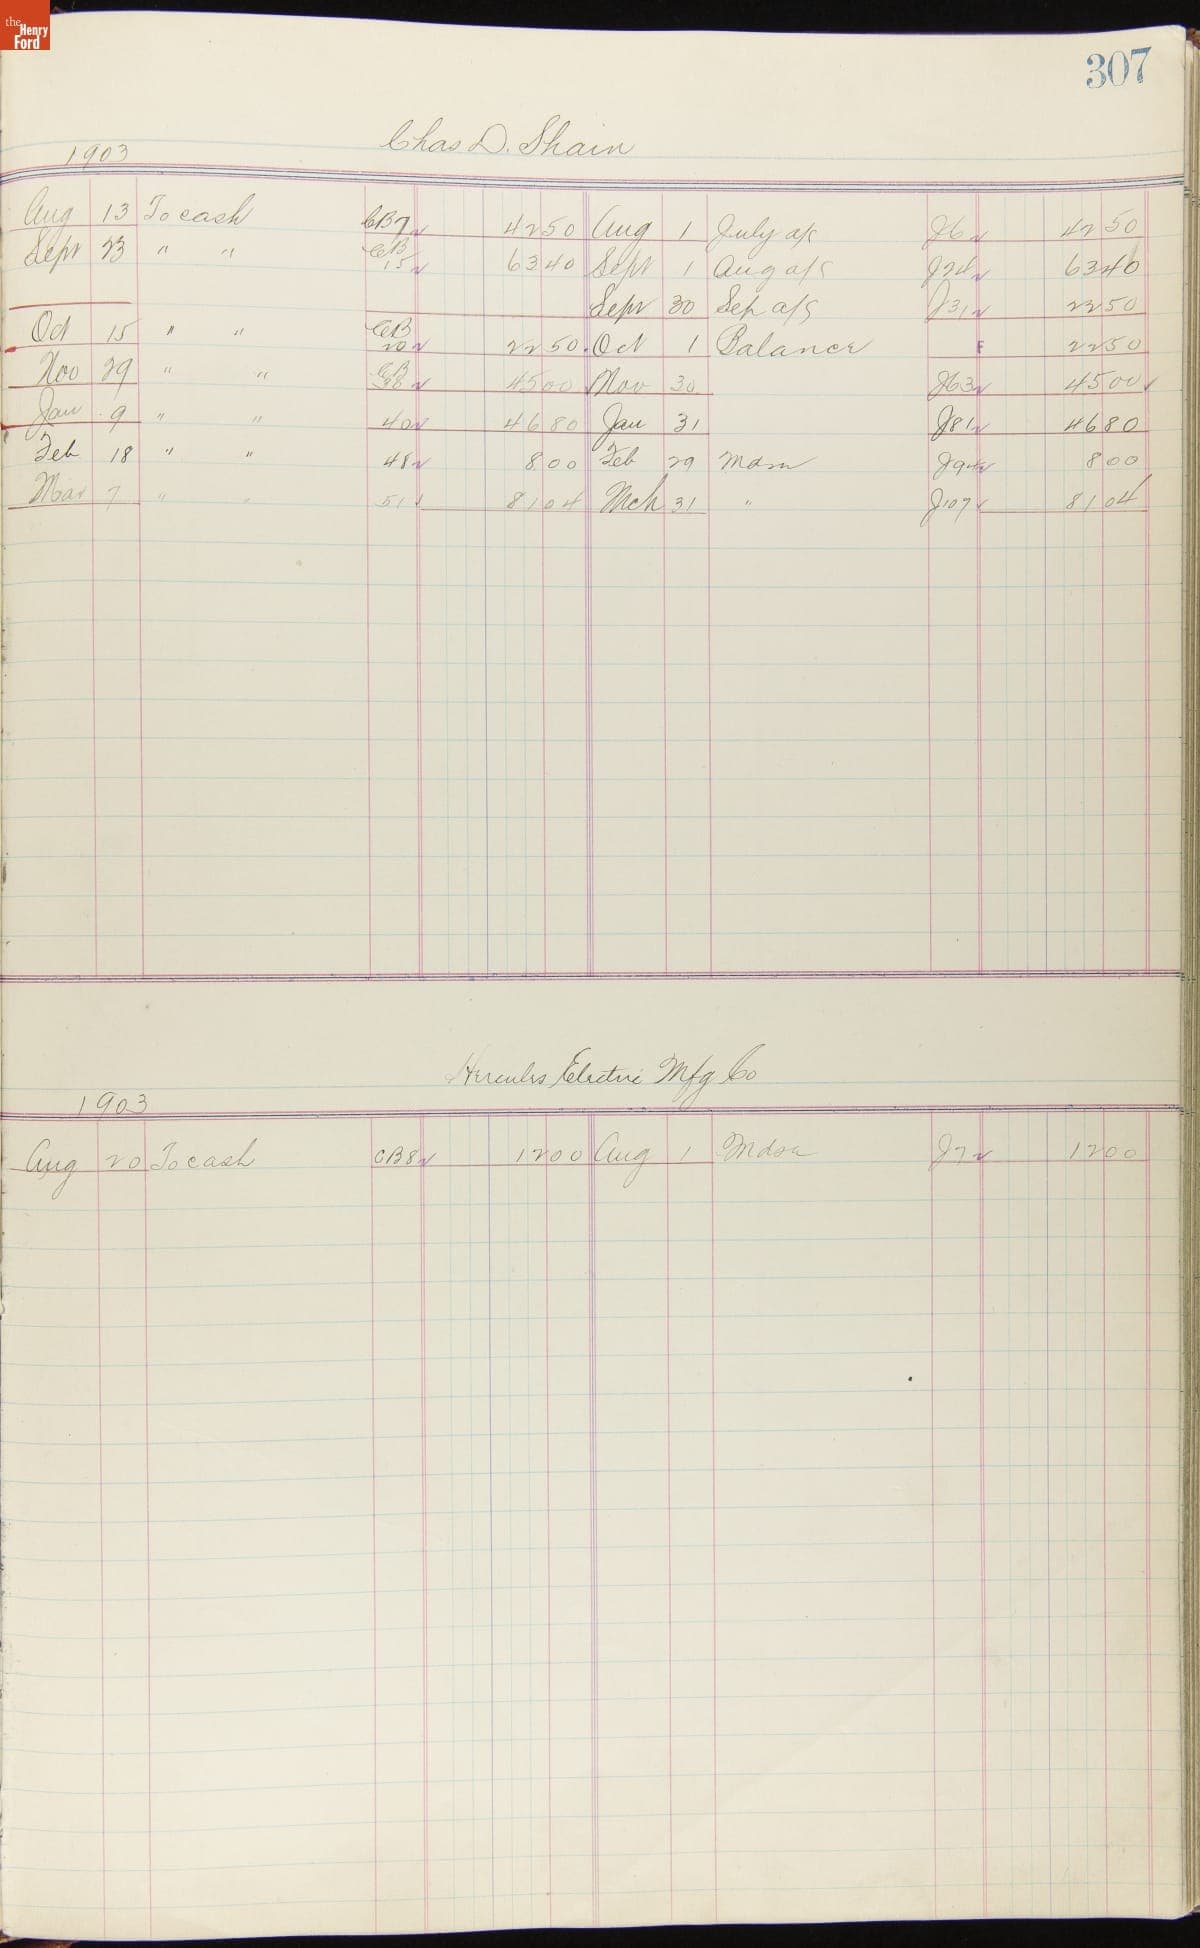 the Henry Ford
307
Chas D. Shain
1903
Aug 13 To cash CB7 42 50 Aug 1 July a/c J6 42 50
Sept 23 " " CB 15 63 40 Sept 1 Aug a/c J24 63 40
Sept 30 Sep a/c J31 22 50
Oct 15 " " CB 20 22 50 Oct 1 Balance F 22 50
Nov 29 " " CB 45 00 Nov 30 J63 45 00
Jan 9 " " 40 46 80 Jan 31 J81 46 80
Feb 18 " " 48 8 00 Feb 29 Mdse 8 00
Mar 7 " " 51 81 04 Mch 31 " J107 81 04
Hercules Electric Mfg Co
1903
Aug 20 To cash CB8 12 00 Aug 1 Mdse J7 12 00